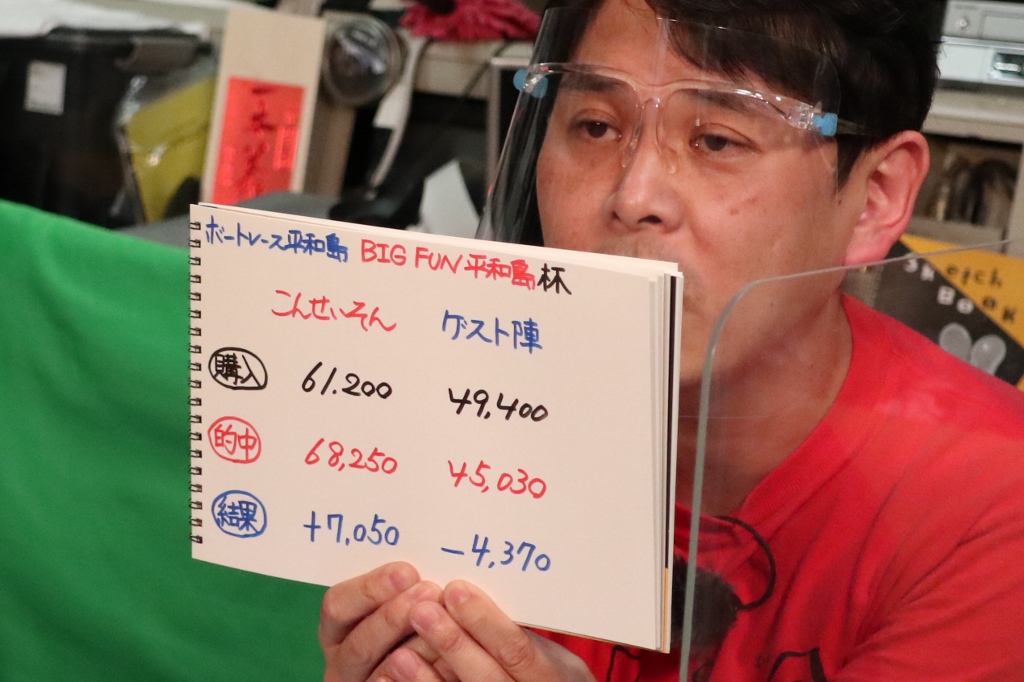 ボートレース平和島 BIG FUN平和島杯
こんせいそん ゲスト陣
購入 61.200 49,400
的中 68,250 45,030
結果 +7,050 -4,370
Sketch
BOOK